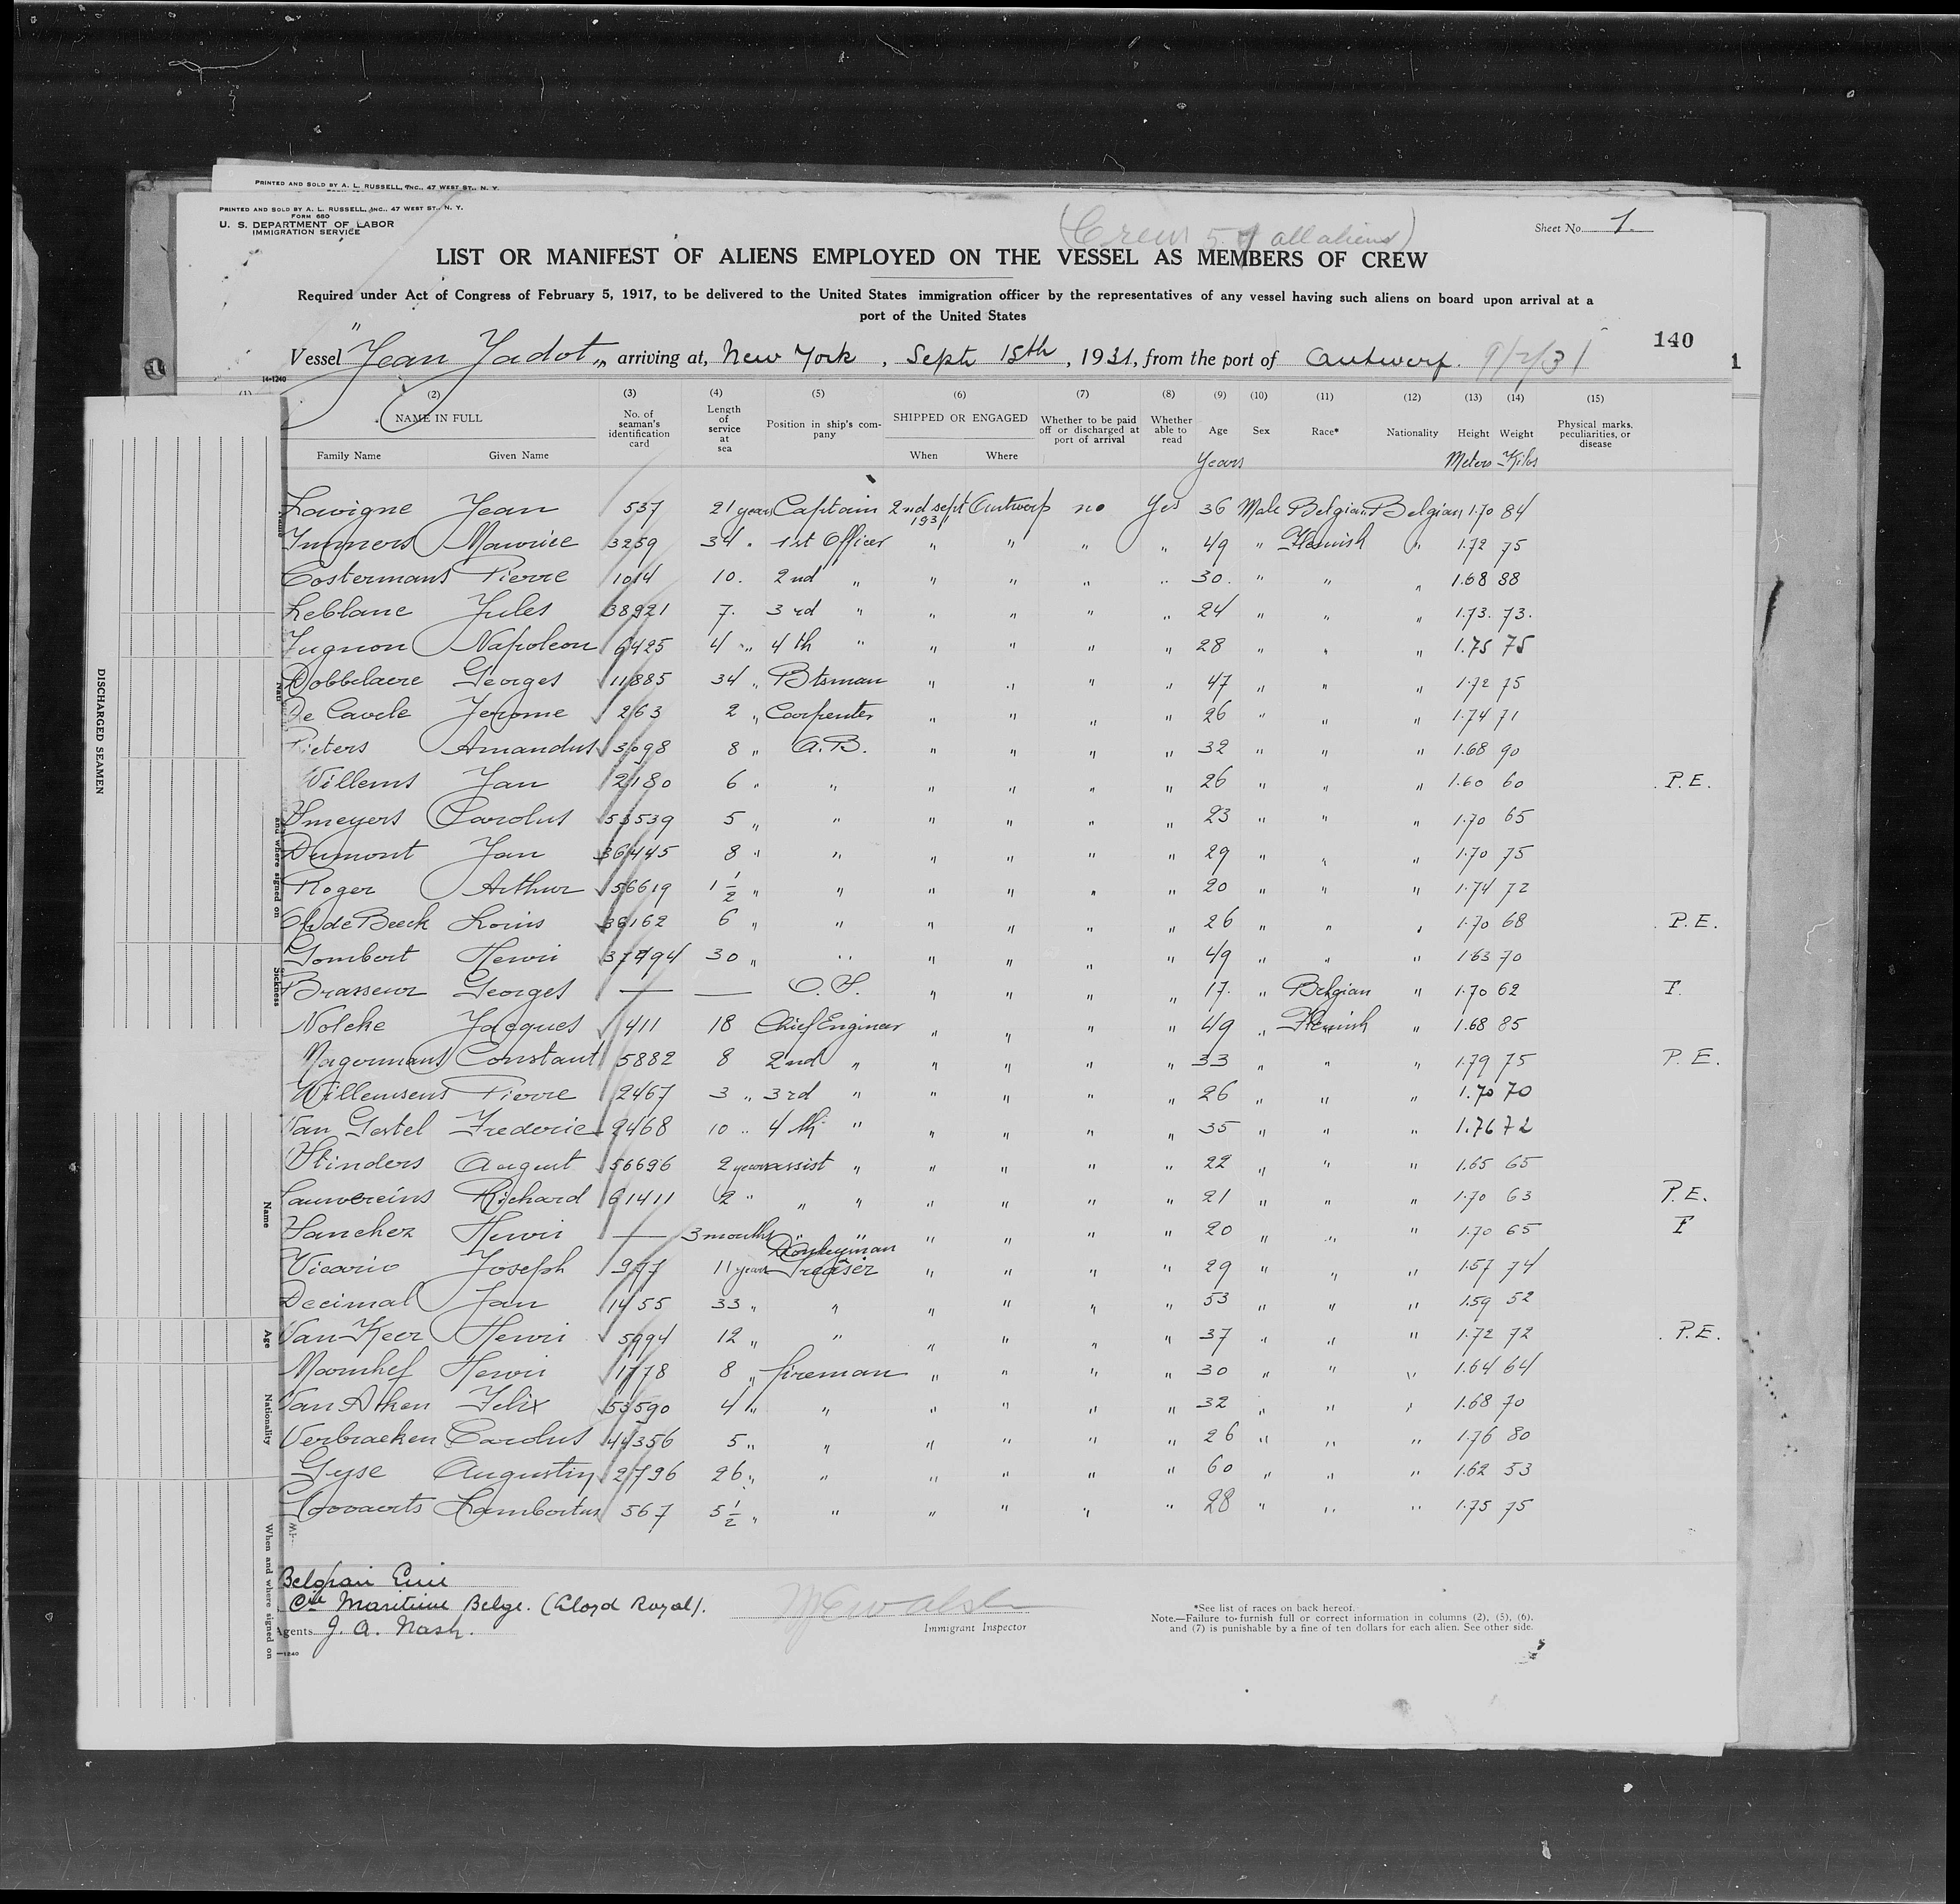 PRINTED AND SOLD BY A. L. RUSSELL, INC., 47 WEST ST., N. Y.
PRINTED AND SOLD BY A. L. RUSSELL, INC., 47 WEST ST., N. Y.
FORM 680
U. S. DEPARTMENT OF LABOR
IMMIGRATION SERVICE
(Crew all aliens)
Sheet No. 1.
LIST OR MANIFEST OF ALIENS EMPLOYED ON THE VESSEL AS MEMBERS OF CREW
Required under Act of Congress of February 5, 1917, to be delivered to the United States immigration officer by the representatives of any vessel having such aliens on board upon arrival at a
port of the United States
140
Vessel "Jean Jadot" arriving at, New York, Septh 15th, 1931, from the port of Antwerp.
1
14-1240
(1) (2) (3) (4) (5) (6) (7) (8) (9) (10) (11) (12) (13) (14) (15)
NAME IN FULL No. of seaman's identification card Length of service at sea Position in ship's company SHIPPED OR ENGAGED Whether to be paid off or discharged at port of arrival Whether able to read Age Sex Race* Nationality Height Weight Physical marks, peculiarities, or disease
Family Name Given Name When Where Years Meters - Kilos
Lavigne Jean 537 21 years Captain 2nd sept 1931 Antwerp no Yes 36 Male Belgian Belgian 1.70 84
Maurice 3259 34 " 1st Officer " " " " 49 " Flemish " 1.72 75
Costermans Pierre 1014 10. 2nd " " " " " 30. " " " 1.68 88
Leblanc Jules 38921 7. 3rd " " " " " 24 " " " 1.73. 73.
Napoleon 6425 4 " 4th " " " " " 28 " " " 1.75 75
Dobbelaere Georges 11885 34 " Btsman " " " " 47 " " " 1.72 75
De Cavele Jerome 263 2 " Carpenter " " " " 26 " " " 1.74 71
Pieters Amandus 3098 8 " A.B. " " " " 32 " " " 1.68 90
Willems Jan 2180 6 " " " " " " 26 " " " 1.60 60 P.E.
Smeyers Carolus 53539 5 " " " " " " 23 " " " 1.70 65
Dumont Jan 36445 8 " " " " " " 29 " " " 1.70 75
Roger Arthur 56619 1 1/2 " " " " " " 20 " " " 1.74 72
Op de Beeck Louis 36162 6 " " " " " " 26 " " " 1.70 68 P.E.
Gombert Henri 37494 30 " " " " " " 49 " " " 1.63 70
Brasseur Georges — — O.S. " " " " 17. " Belgian " 1.70 62 F.
Nolche Jacques 411 18 Chief Engineer " " " " 49 " Flemish " 1.68 85
Nagermans Constant 5882 8 2nd " " " " " 33 " " " 1.79 75 P.E.
Willemsens Pierre 2467 3 " 3rd " " " " " 26 " " " 1.70 70
Van Gestel Frederic 2468 10 " 4th " " " " " 35 " " " 1.76 72
Stinders August 56696 2 years assist " " " " " 22 " " " 1.65 65
Lauwereins Richard 61411 2 " " " " " " " 21 " " " 1.70 63 P.E.
Sanchez Henri — 3 months " " " " " " 20 " " " 1.70 65 F
Donkeyman
Vicario Joseph 977 11 years Greaser " " " " 29 " " " 1.57 74
Decimal Jan 1455 33 " " " " " " 53 " " " 1.59 52
Van Keer Henri 5994 12 " " " " " " 37 " " " 1.72 72 P.E.
Henri 1778 8 " fireman " " " " 30 " " " 1.64 64
Van Aken Felix 53590 4 " " " " " " 32 " " " 1.68 70
Verbraeken Carolus 44356 5 " " " " " " 26 " " " 1.76 80
Gyse Augustin 2796 26 " " " " " " 60 " " " 1.62 53
Govaerts Lambertus 567 5 1/2 " " " " " " 28 " " " 1.75 75
Belgian Line
Cie Maritime Belge. (Lloyd Royal).
Agents J. A. Nash.
Immigrant Inspector
*See list of races on back hereof.
Note.—Failure to furnish full or correct information in columns (2), (5), (6),
and (7) is punishable by a fine of ten dollars for each alien. See other side.
—1240
DISCHARGED SEAMEN
and where signed on
Sickness
Name
Age
Nationality
When and where signed on